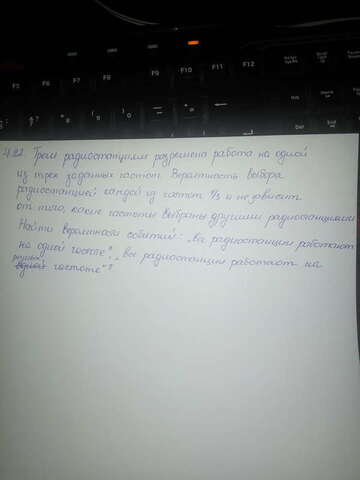 F5
F6
F7
F8
F9
F10
F11
F12
4.22. Трем радиостанциям разрешена работа на одной
из трех заданных частот. Вероятность выбора
радиостанцией каждой из частот 1/3 и не зависит
от того, какие частоты выбраны другими радиостанциями
Найти вероятности событий: „все радиостанции работают
на одной частоте", „все радиостанции работают на
разных
одной частоте"?